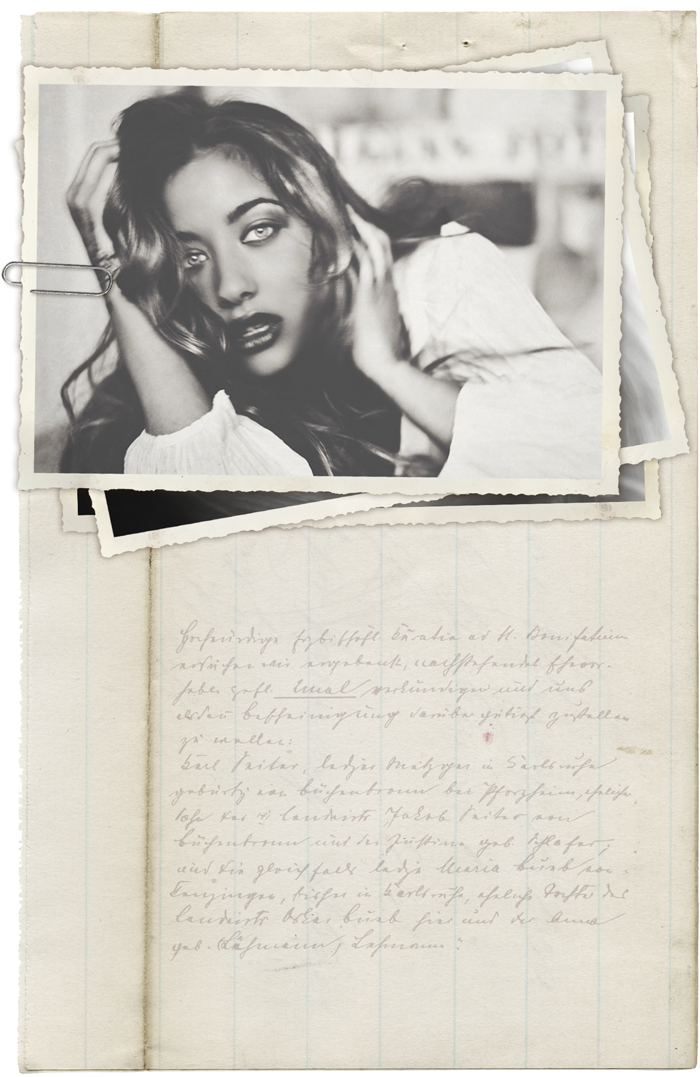 Hochwürdige Erzbischöfl. Curatie ad St. Bonifatium
ersuchen wir ergebenst, nachstehendes Ehevor-
haben gefl. 1mal verkündigen und uns
Bescheinigung darüber gütigst zustellen
zu wollen:
Karl Seiter, lediger Metzger in Karlsruhe
gebürtig von Büchenbronn bei Pforzheim, ehelicher
Sohn des Landwirts Jakob Seiter von
Büchenbronn und der Justine geb. Schlafer;
und die gleichfalls ledige Maria Bueb von
Kenzingen, bisher in Karlsruhe, eheliche Tochter des
Landwirts Oskar Bueb hier und der Anna
geb. Lehmann